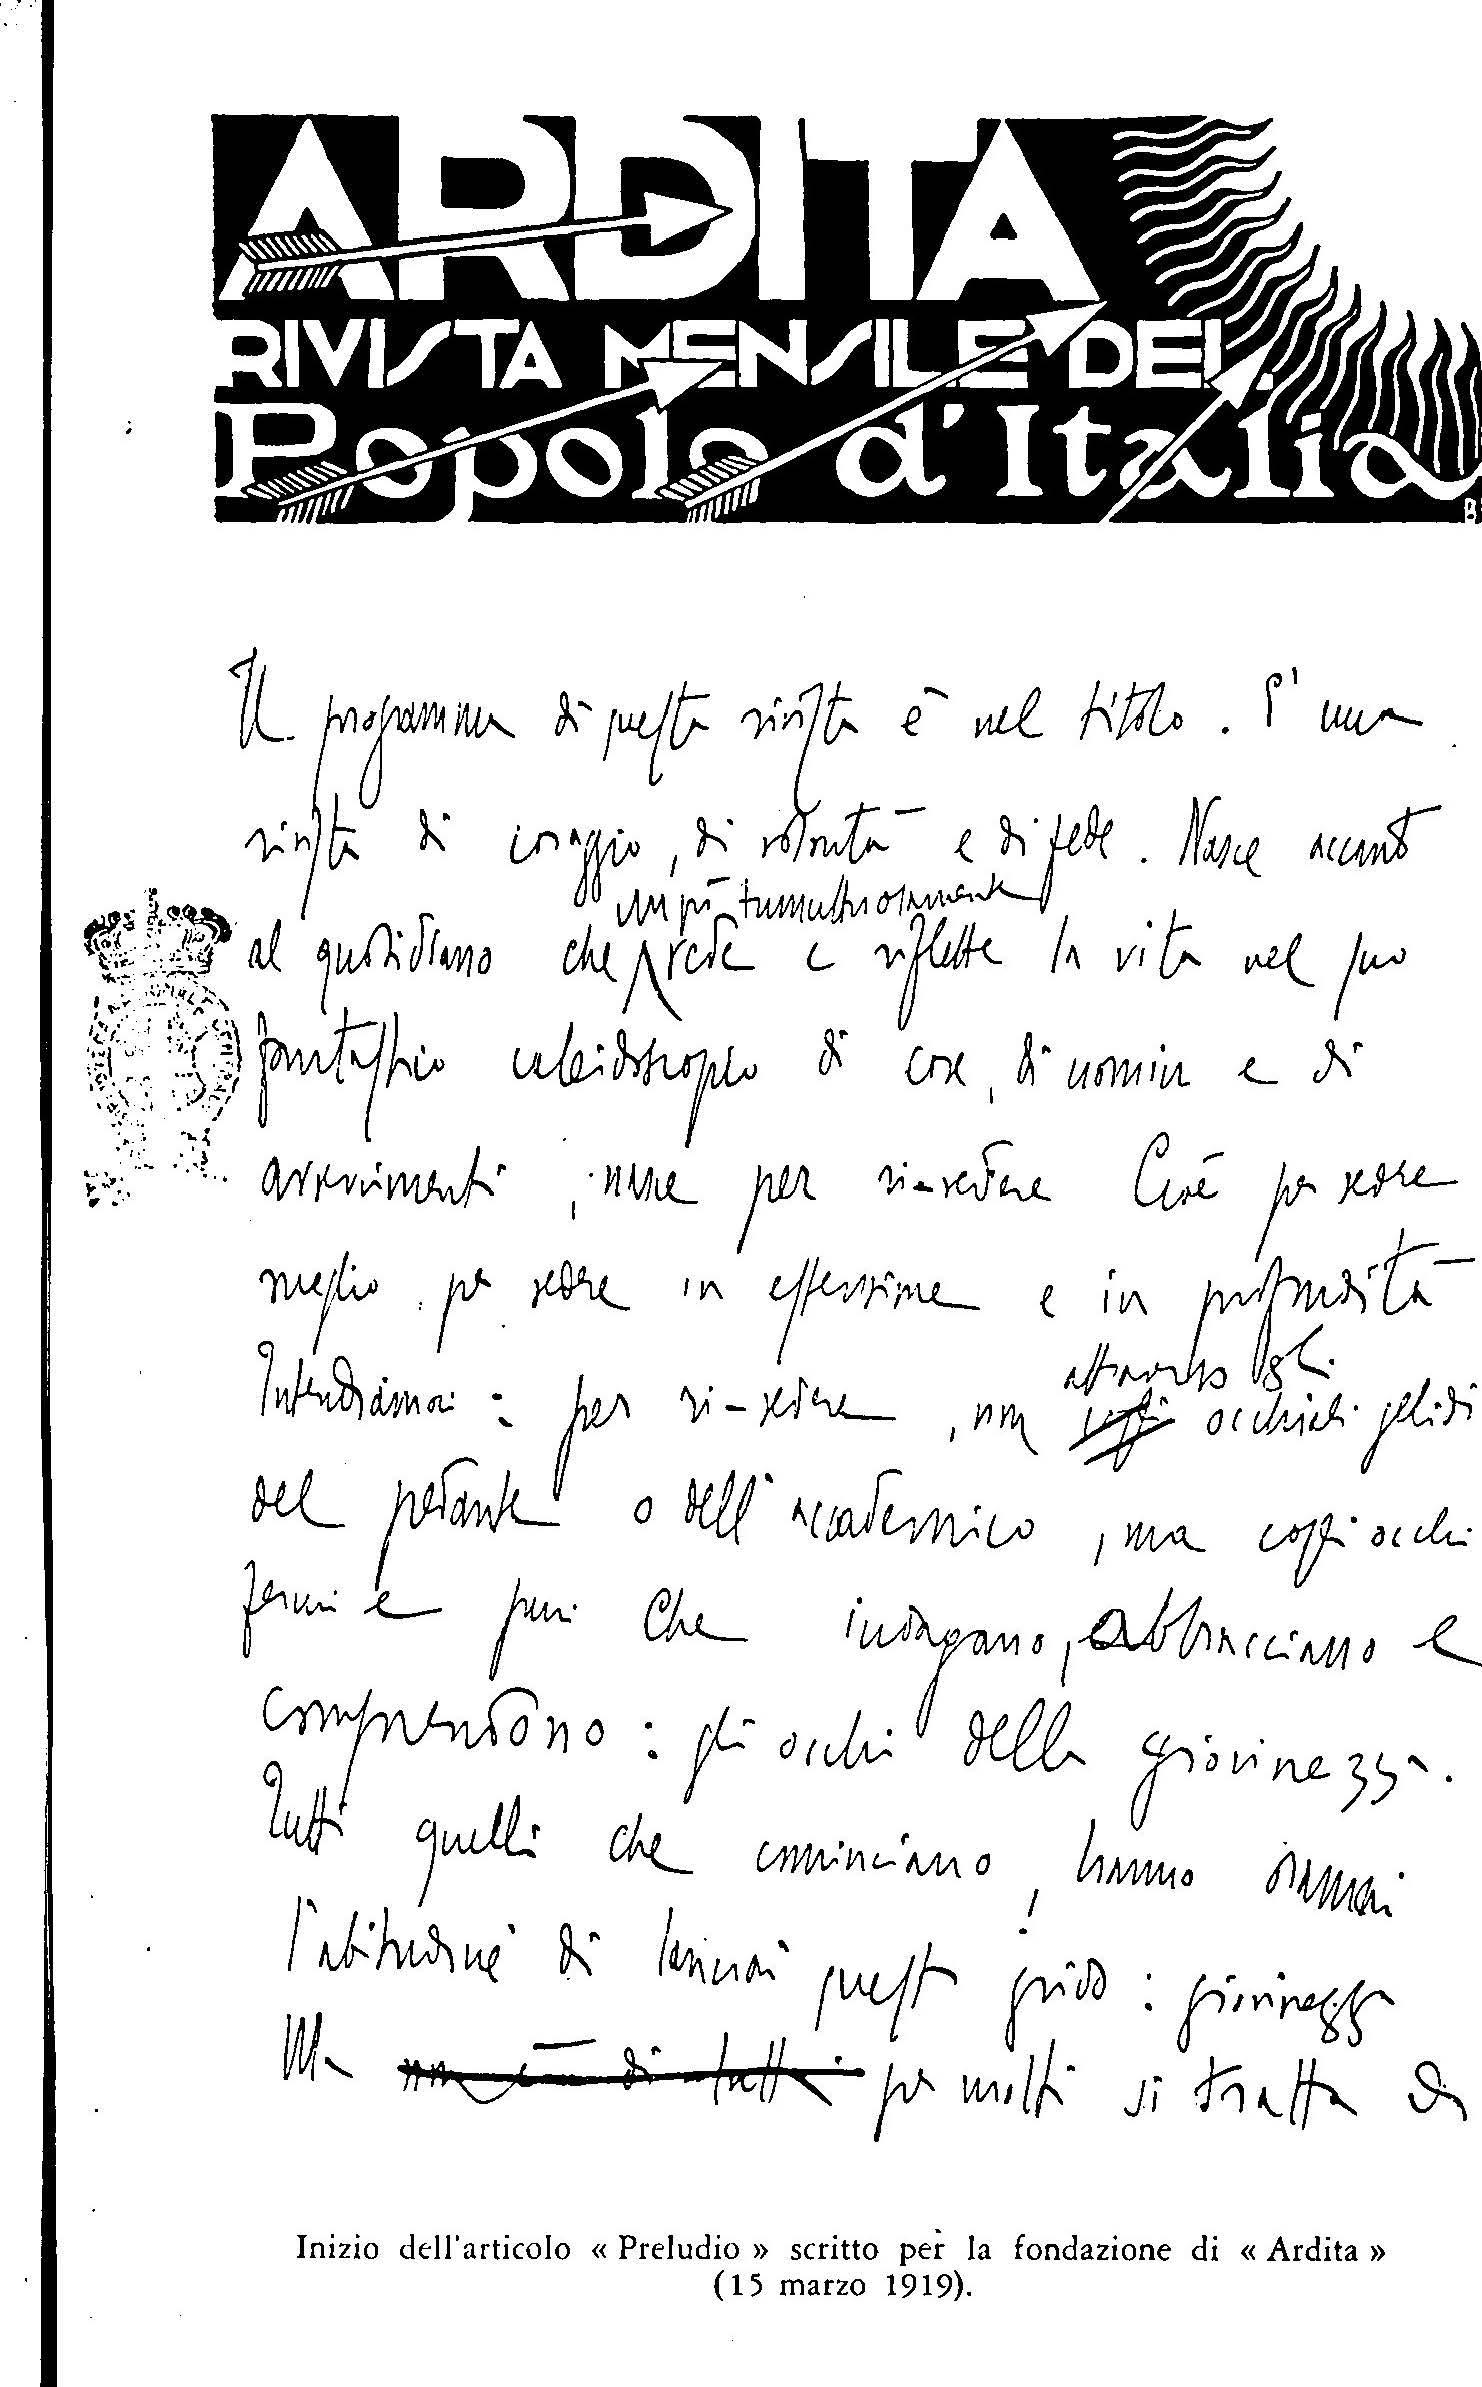 ARDITA
RIVISTA MENSILE DEL
Popolo d'Italia
Il programma di questa rivista è nel titolo. È una
rivista di coraggio, di volontà e di fede. Nasce accanto
un po' tumultuosamente
al quotidiano che vede e riflette la vita nel suo
fantastico caleidoscopio di cose, di uomini e di
avvenimenti, nasce per ri-vedere Cioè per vedere
meglio, per vedere in estensione e in profondità
attraverso gli
Intendiamoci: per ri-vedere, non cogli occhiali gelidi
del pedante o dell'accademico, ma cogli occhi
fermi e puri che indagano, abbracciano e
comprendono: gli occhi della giovinezza.
Tutti quelli che cominciano, hanno oramai
l'abitudine di lanciar questo grido: giovinezza!
Ma non è di tutti per molti si tratta di
Inizio dell'articolo « Preludio » scritto per la fondazione di « Ardita »
(15 marzo 1919).